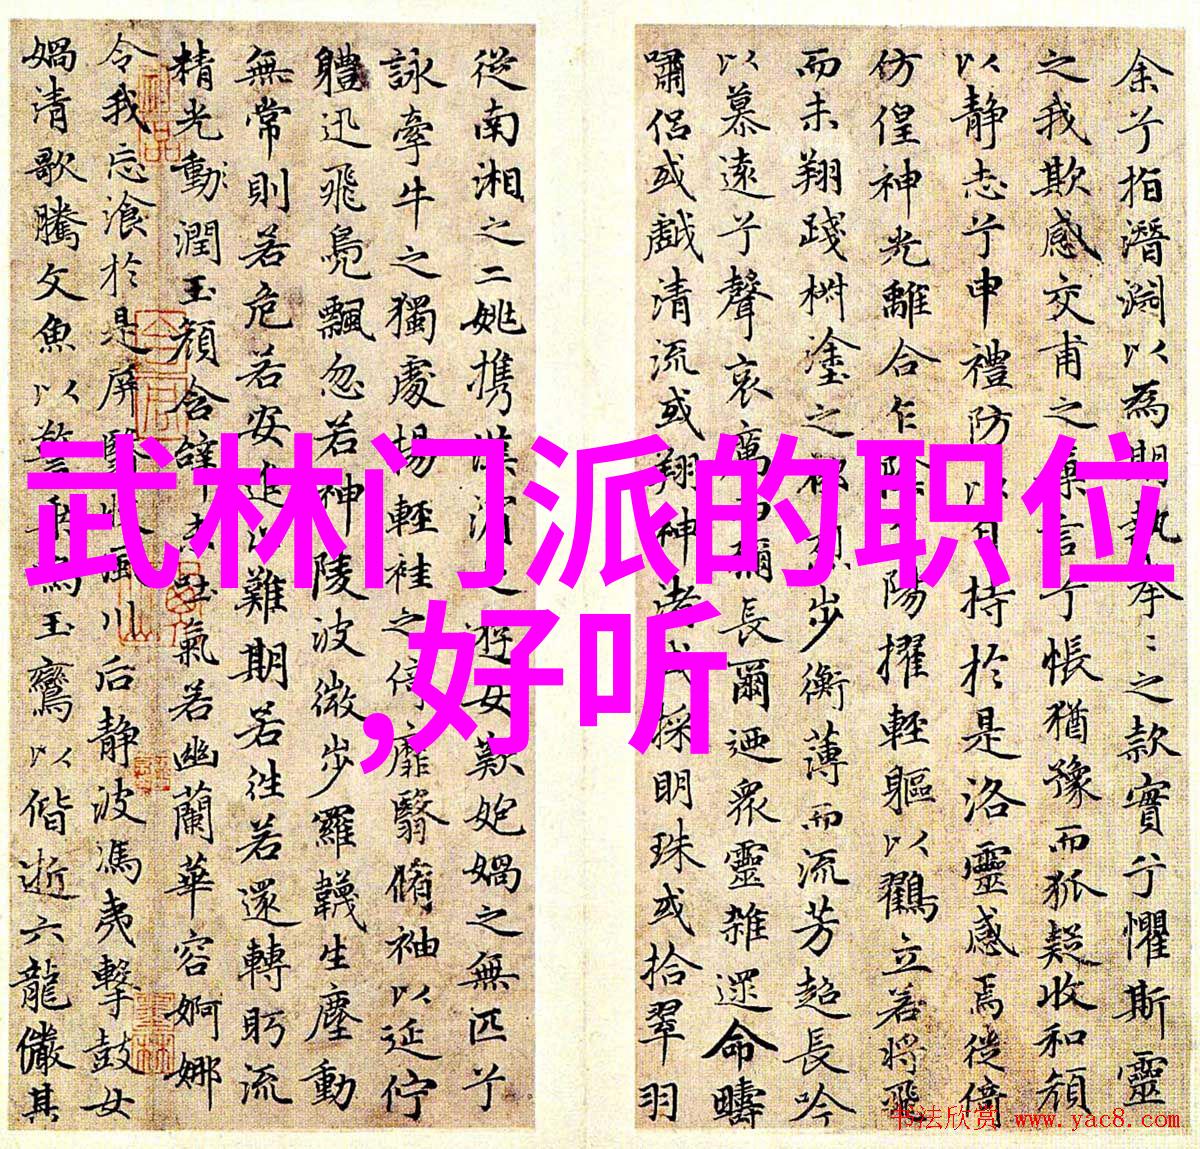 武林门派的职位
,好听
余兮指潛淵以為期執拳〻之款實兮懼斯靈
之我欺感交甫之棄言兮悵猶豫而狐疑收和顏
以靜志兮申禮防以自持於是洛靈感焉徙倚
仿偟神光離合乍陰乍陽擢輕軀以鶴立若將飛
而未翔踐椒塗之郁烈步衡薄而流芳超長吟
以慕遠兮聲哀厲而彌長爾迺衆靈雜遝命疇
嘯侶或戲清流或翔神渚或採明珠或拾翠羽
從南湘之二姚攜漢濱之遊女歎匏媧之無匹兮
詠牽牛之獨處揚輕袿之倚靡翳脩袖以延佇
體迅飛鳧飄忽若神陵波微步羅韈生塵動
無常則若危若安進止難期若往若還轉眄流
精光動潤玉顏含辭未吐氣若幽蘭華容婀娜
令我忘飡於是屏翳收風川后靜波馮夷擊鼓女
媧清歌騰文魚以警乘鳴玉鸞以偕逝六龍儼其
书法欣赏 www.yac8.com